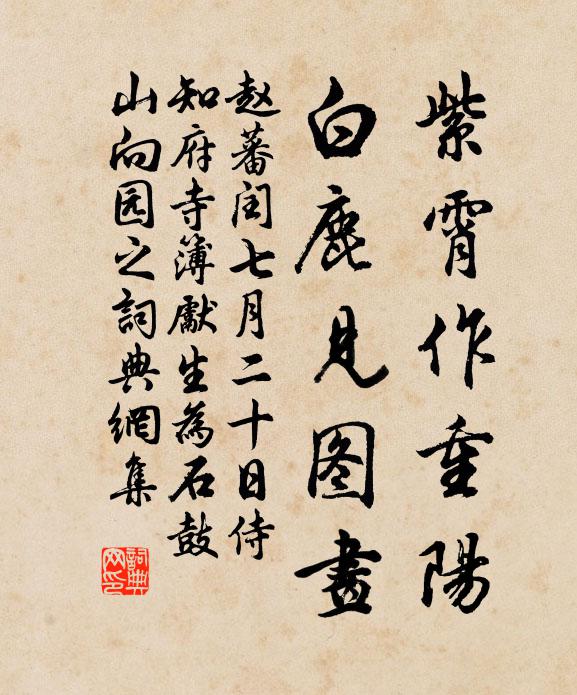 紫霄作重陽
白鹿見图畫
赵蕃闰七月二十日侍
知府寺簿獻生為石鼓
山向园之詞典網集
詞典网印